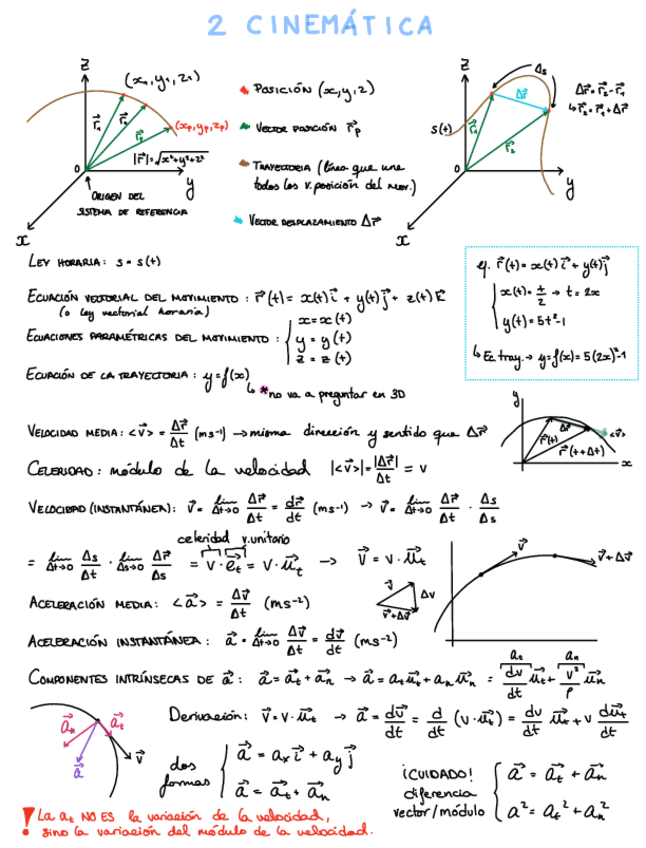 2 CINEMÁTICA
z
(x₁, y₁, z₁)
r⃗₁
r⃗₂
(xₚ, yₚ, zₚ)
|r⃗| = √x²+y²+z²
0
y
x
ORIGEN DEL
SISTEMA DE REFERENCIA
POSICIÓN (x, y, z)
VECTOR POSICIÓN r⃗ₚ
TRAYECTORIA (línea que une
todos los v. posición del mov.)
VECTOR DESPLAZAMIENTO Δr⃗
z
Δs
Δr⃗
Δr⃗ = r⃗₂ - r⃗₁
↳ r⃗₂ = r⃗₁ + Δr⃗
s(t)
r⃗₁
r⃗₂
0
y
x
LEY HORARIA: s = s(t)
ECUACIÓN VECTORIAL DEL MOVIMIENTO: r⃗(t) = x(t) i⃗ + y(t) j⃗ + z(t) k⃗
(o ley vectorial horaria)
ECUACIONES PARAMÉTRICAS DEL MOVIMIENTO:
x = x(t)
y = y(t)
z = z(t)
ECUACIÓN DE LA TRAYECTORIA: y = f(x)
↳ *no va a preguntar en 3D
ej. r⃗(t) = x(t) i⃗ + y(t) j⃗
x(t) = t/2 → t = 2x
y(t) = 5t² - 1
↳ Ec. tray. → y = f(x) = 5(2x)² - 1
VELOCIDAD MEDIA: <v⃗> = Δr⃗/Δt (ms⁻¹) → misma dirección y sentido que Δr⃗
y
Δr⃗
<v⃗>
r⃗(t)
r⃗(t+Δt)
x
CELERIDAD: módulo de la velocidad |<v⃗>| = |Δr⃗|/Δt = v
VELOCIDAD (INSTANTÁNEA): v⃗ = lim Δt→0 Δr⃗/Δt = dr⃗/dt (ms⁻¹) → v⃗ = lim Δt→0 Δr⃗/Δt · Δs/Δs
celeridad v. unitario
= lim Δt→0 Δs/Δt · lim Δs→0 Δr⃗/Δs = v · e⃗ₜ = v · u⃗ₜ → v⃗ = v · u⃗ₜ
v⃗
v⃗ + Δv⃗
ACELERACIÓN MEDIA: <a⃗> = Δv⃗/Δt (ms⁻²)
v⃗
Δv
v⃗+Δv⃗
ACELERACIÓN INSTANTÁNEA: a⃗ = lim Δt→0 Δv⃗/Δt = dv⃗/dt (ms⁻²)
aₜ aₙ
COMPONENTES INTRÍNSECAS DE a⃗: a⃗ = a⃗ₜ + a⃗ₙ → a⃗ = aₜu⃗ₜ + aₙu⃗ₙ = dv/dt u⃗ₜ + v²/ρ u⃗ₙ
Derivación: v⃗ = v · u⃗ₜ → a⃗ = dv⃗/dt = d/dt (v · u⃗ₜ) = dv/dt u⃗ₜ + v du⃗ₜ/dt
a⃗ₙ
a⃗ₜ
a⃗
v⃗
dos
formas
a⃗ = aₓ i⃗ + a_y j⃗
a⃗ = a⃗ₜ + a⃗ₙ
¡CUIDADO!
diferencia
vector/módulo
a⃗ = a⃗ₜ + a⃗ₙ
a² = aₜ² + aₙ²
! La aₜ NO ES la variación de la velocidad,
sino la variación del módulo de la velocidad.